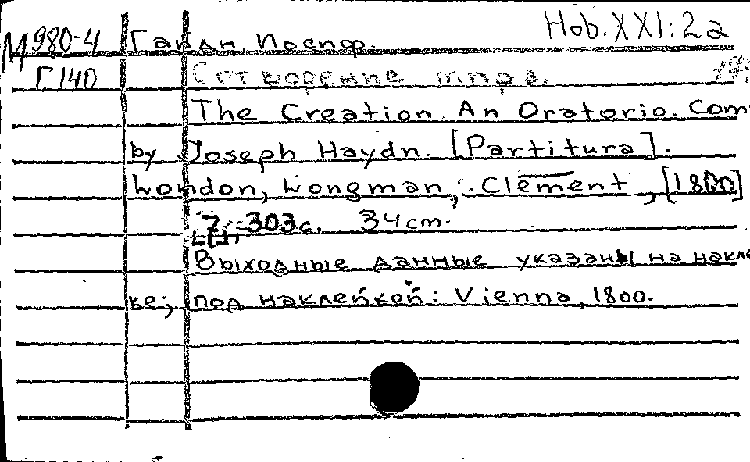 Hob.XXI:2a
М980-4 Гайдн Иосиф.
Г140 Сотворение мира.
The Creation. An Oratorio. Com
by Joseph Haydn. [Partitura].
London, Longman, Clementi, [1800]
303с. 34cm.
Выходные данные указаны на накле
ке; под наклейкой: Vienna, 1800.